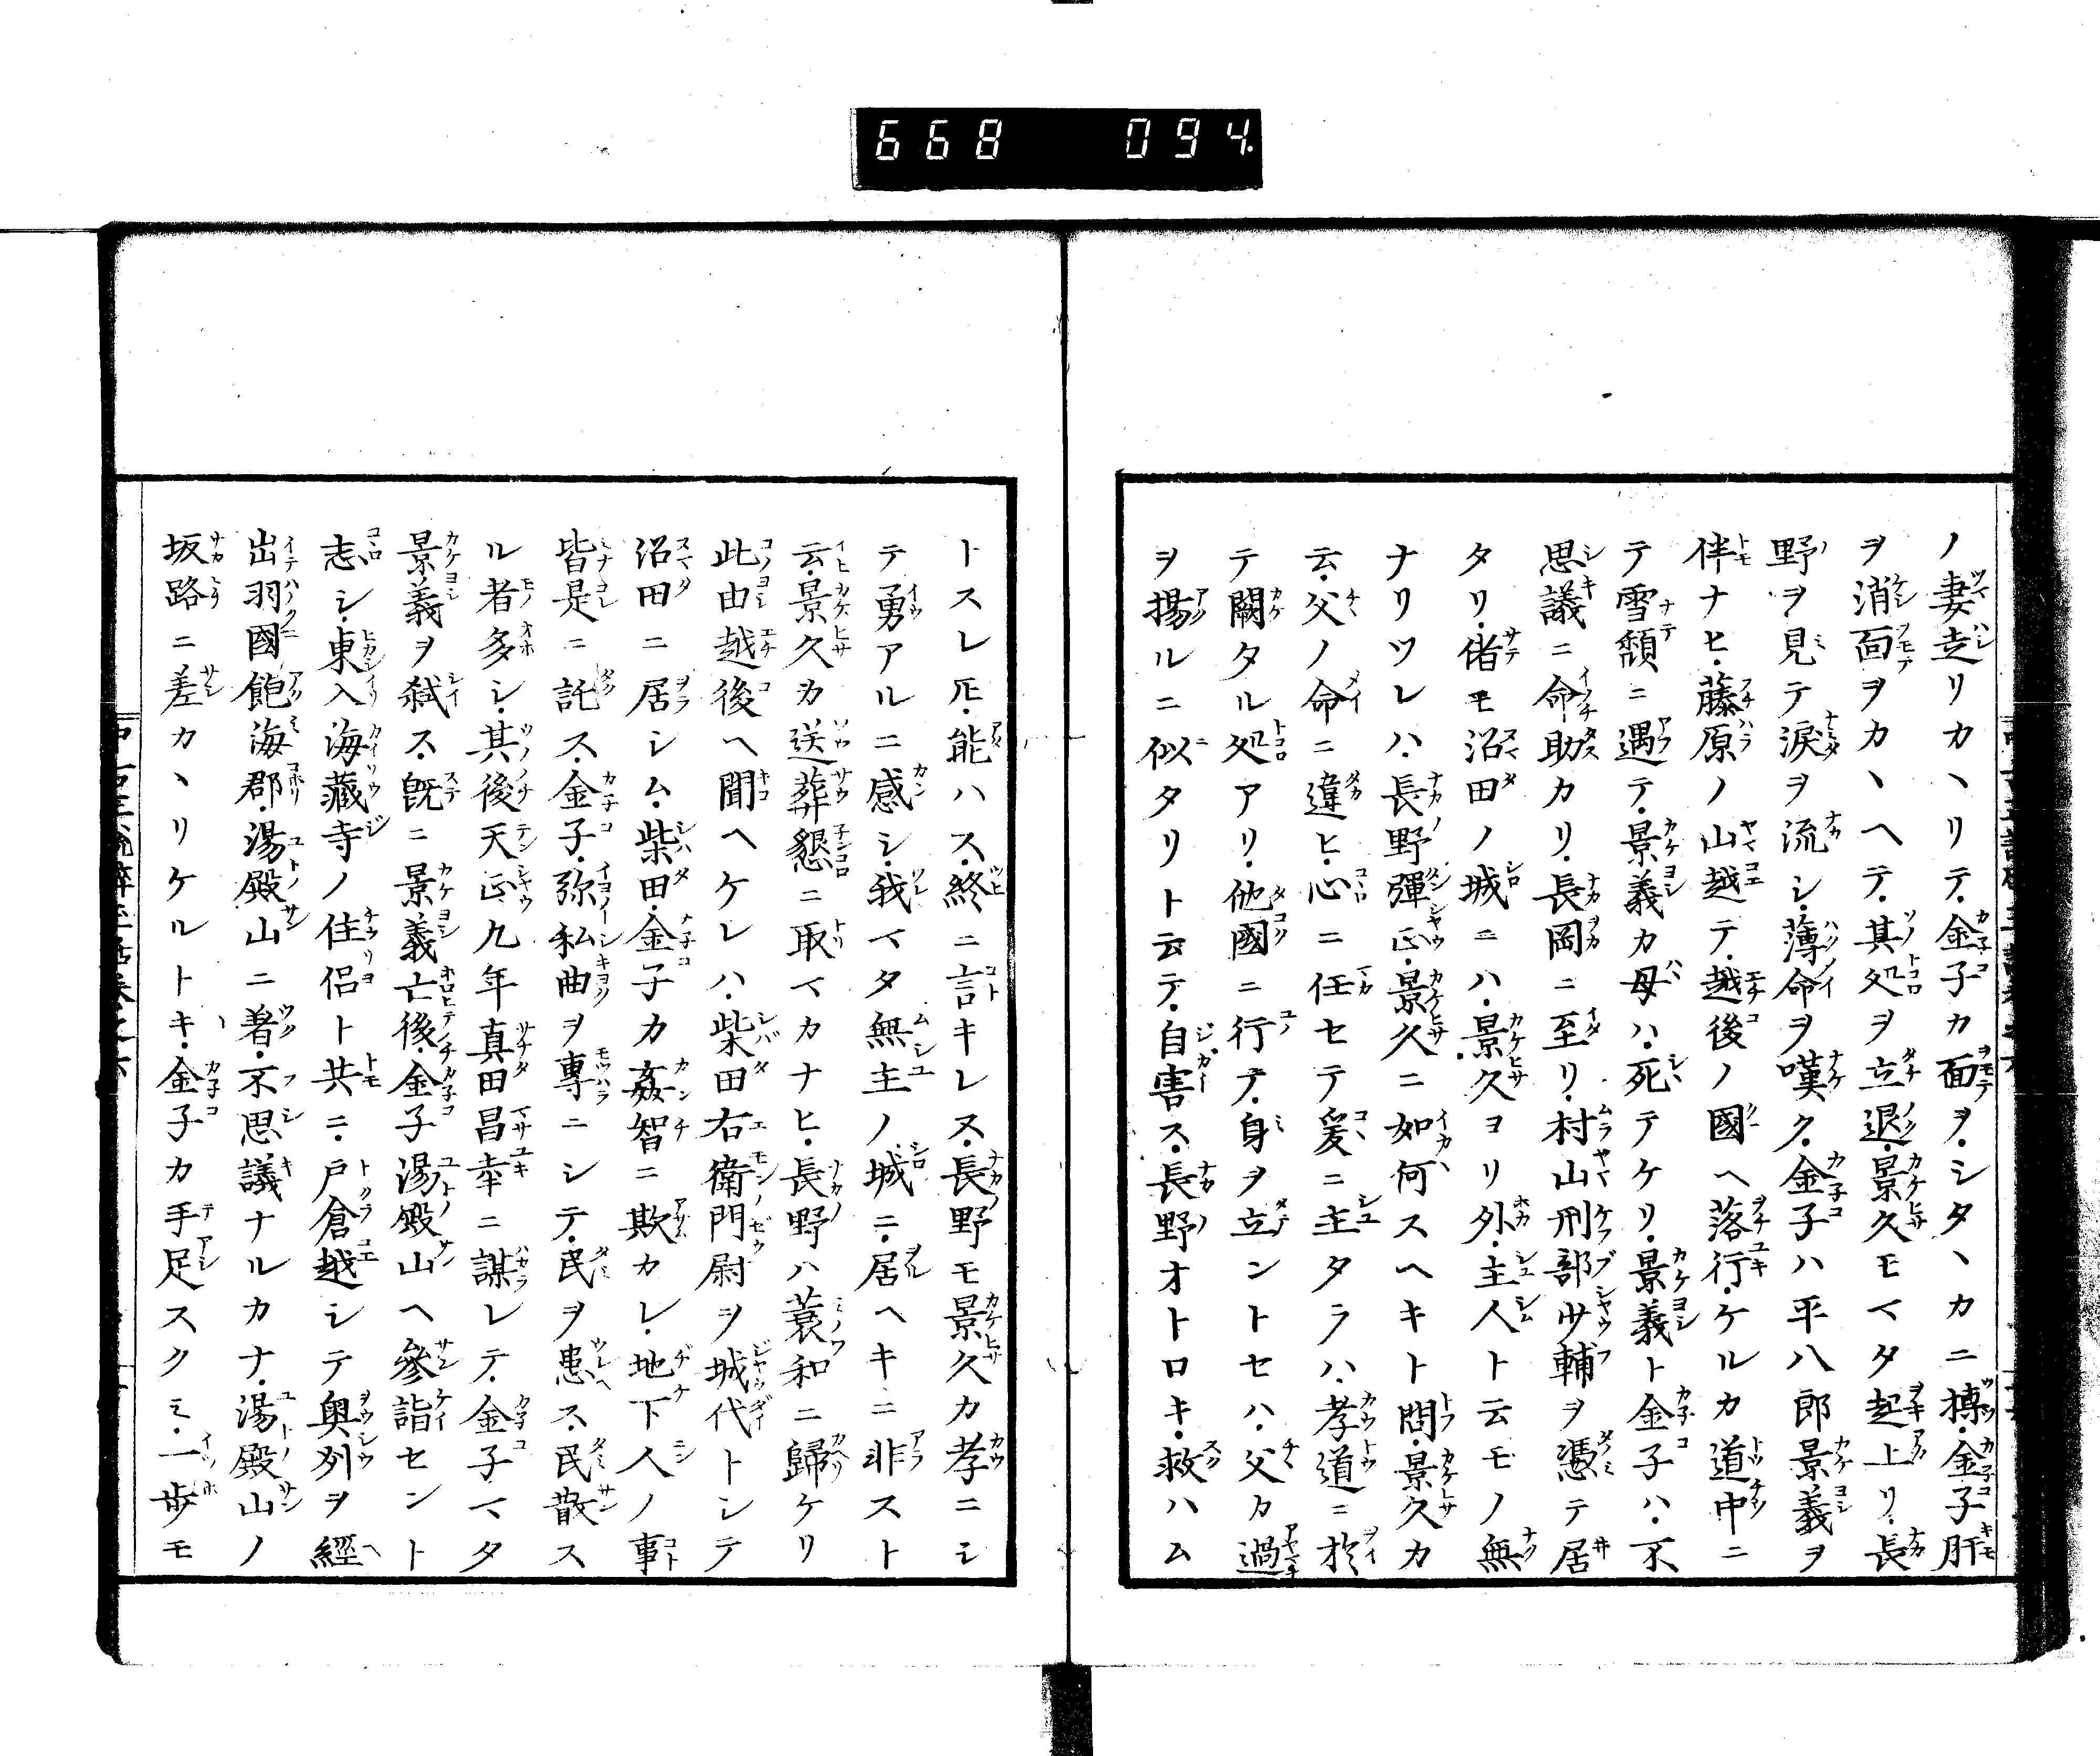 668 094.
ノ妻走リカヽリテ・金子カ面ヲ・シタヽカニ搏・金子肝
ヲ消面ヲカヽヘテ・其処ヲ立退・景久モマタ起上リ・長
野ヲ見テ涙ヲ流シ・薄命ヲ嘆ク・金子ハ平八郎景義ヲ
伴ナヒ・藤原ノ山越テ・越後ノ國ヘ落行・ケルカ道中ニ
テ雪頽ニ遇テ・景義カ母ハ・死テケリ・景義ト金子ハ・不
思議ニ命助カリ・長岡ニ至リ・村山刑部少輔ヲ憑テ居
タリ・偖モ沼田ノ城ニハ・景久ヨリ外・主人ト云モノ無
ナリツレハ・長野彈正・景久ニ如何スヘキト問・景久カ
云・父ノ命ニ違ヒ・心ニ任セテ爰ニ主タラハ・孝道ニ於
テ闕タル処アリ・他國ニ行テ・身ヲ立ントセハ・父カ過
ヲ揚ルニ似タリト云テ・自害ス・長野オトロキ・救ハム
トスレ𪜈・能ハス・終ニ言キレヌ・長野モ景久カ孝ニシ
テ勇アルニ感シ・我マタ無主ノ城ニ・居ヘキニ非スト
云・景久カ送葬懇ニ取マカナヒ・長野ハ蓑和ニ歸ケリ
此由越後ヘ聞ヘケレハ・柴田右衛門尉ヲ城代トシテ
沼田ニ居シム・柴田・金子カ姦智ニ欺カレ・地下人ノ事
皆是ニ託ス・金子・弥私曲ヲ專ニシテ・民ヲ患ス・民散ス
ル者多シ・其後天正九年真田昌幸ニ謀レテ・金子マタ
景義ヲ弑ス・既ニ景義亡後・金子湯殿山ヘ參詣セント
志シ・東入海藏寺ノ住侶ト共ニ・戸倉越シテ奥列ヲ經
出羽國飽海郡・湯殿山ニ着・不思議ナルカナ・湯殿山ノ
坂路ニ差カヽリケルトキ・金子カ手足スクミ・一歩モ